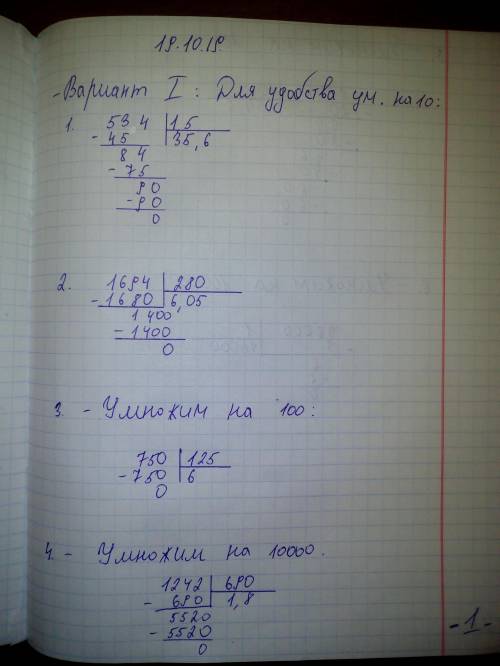 19.10.19
- Вариант I : Для удобства ум. на 10:
1. 534 | 15
- 45 | 35,6
84
- 75
90
- 90
0
2. 1694 | 280
- 1680 | 6,05
1400
- 1400
0
3. - Умножим на 100:
750 | 125
- 750 | 6
0
4. - Умножим на 10000.
1242 | 690
- 690 | 1,8
5520
- 5520
0
-1-